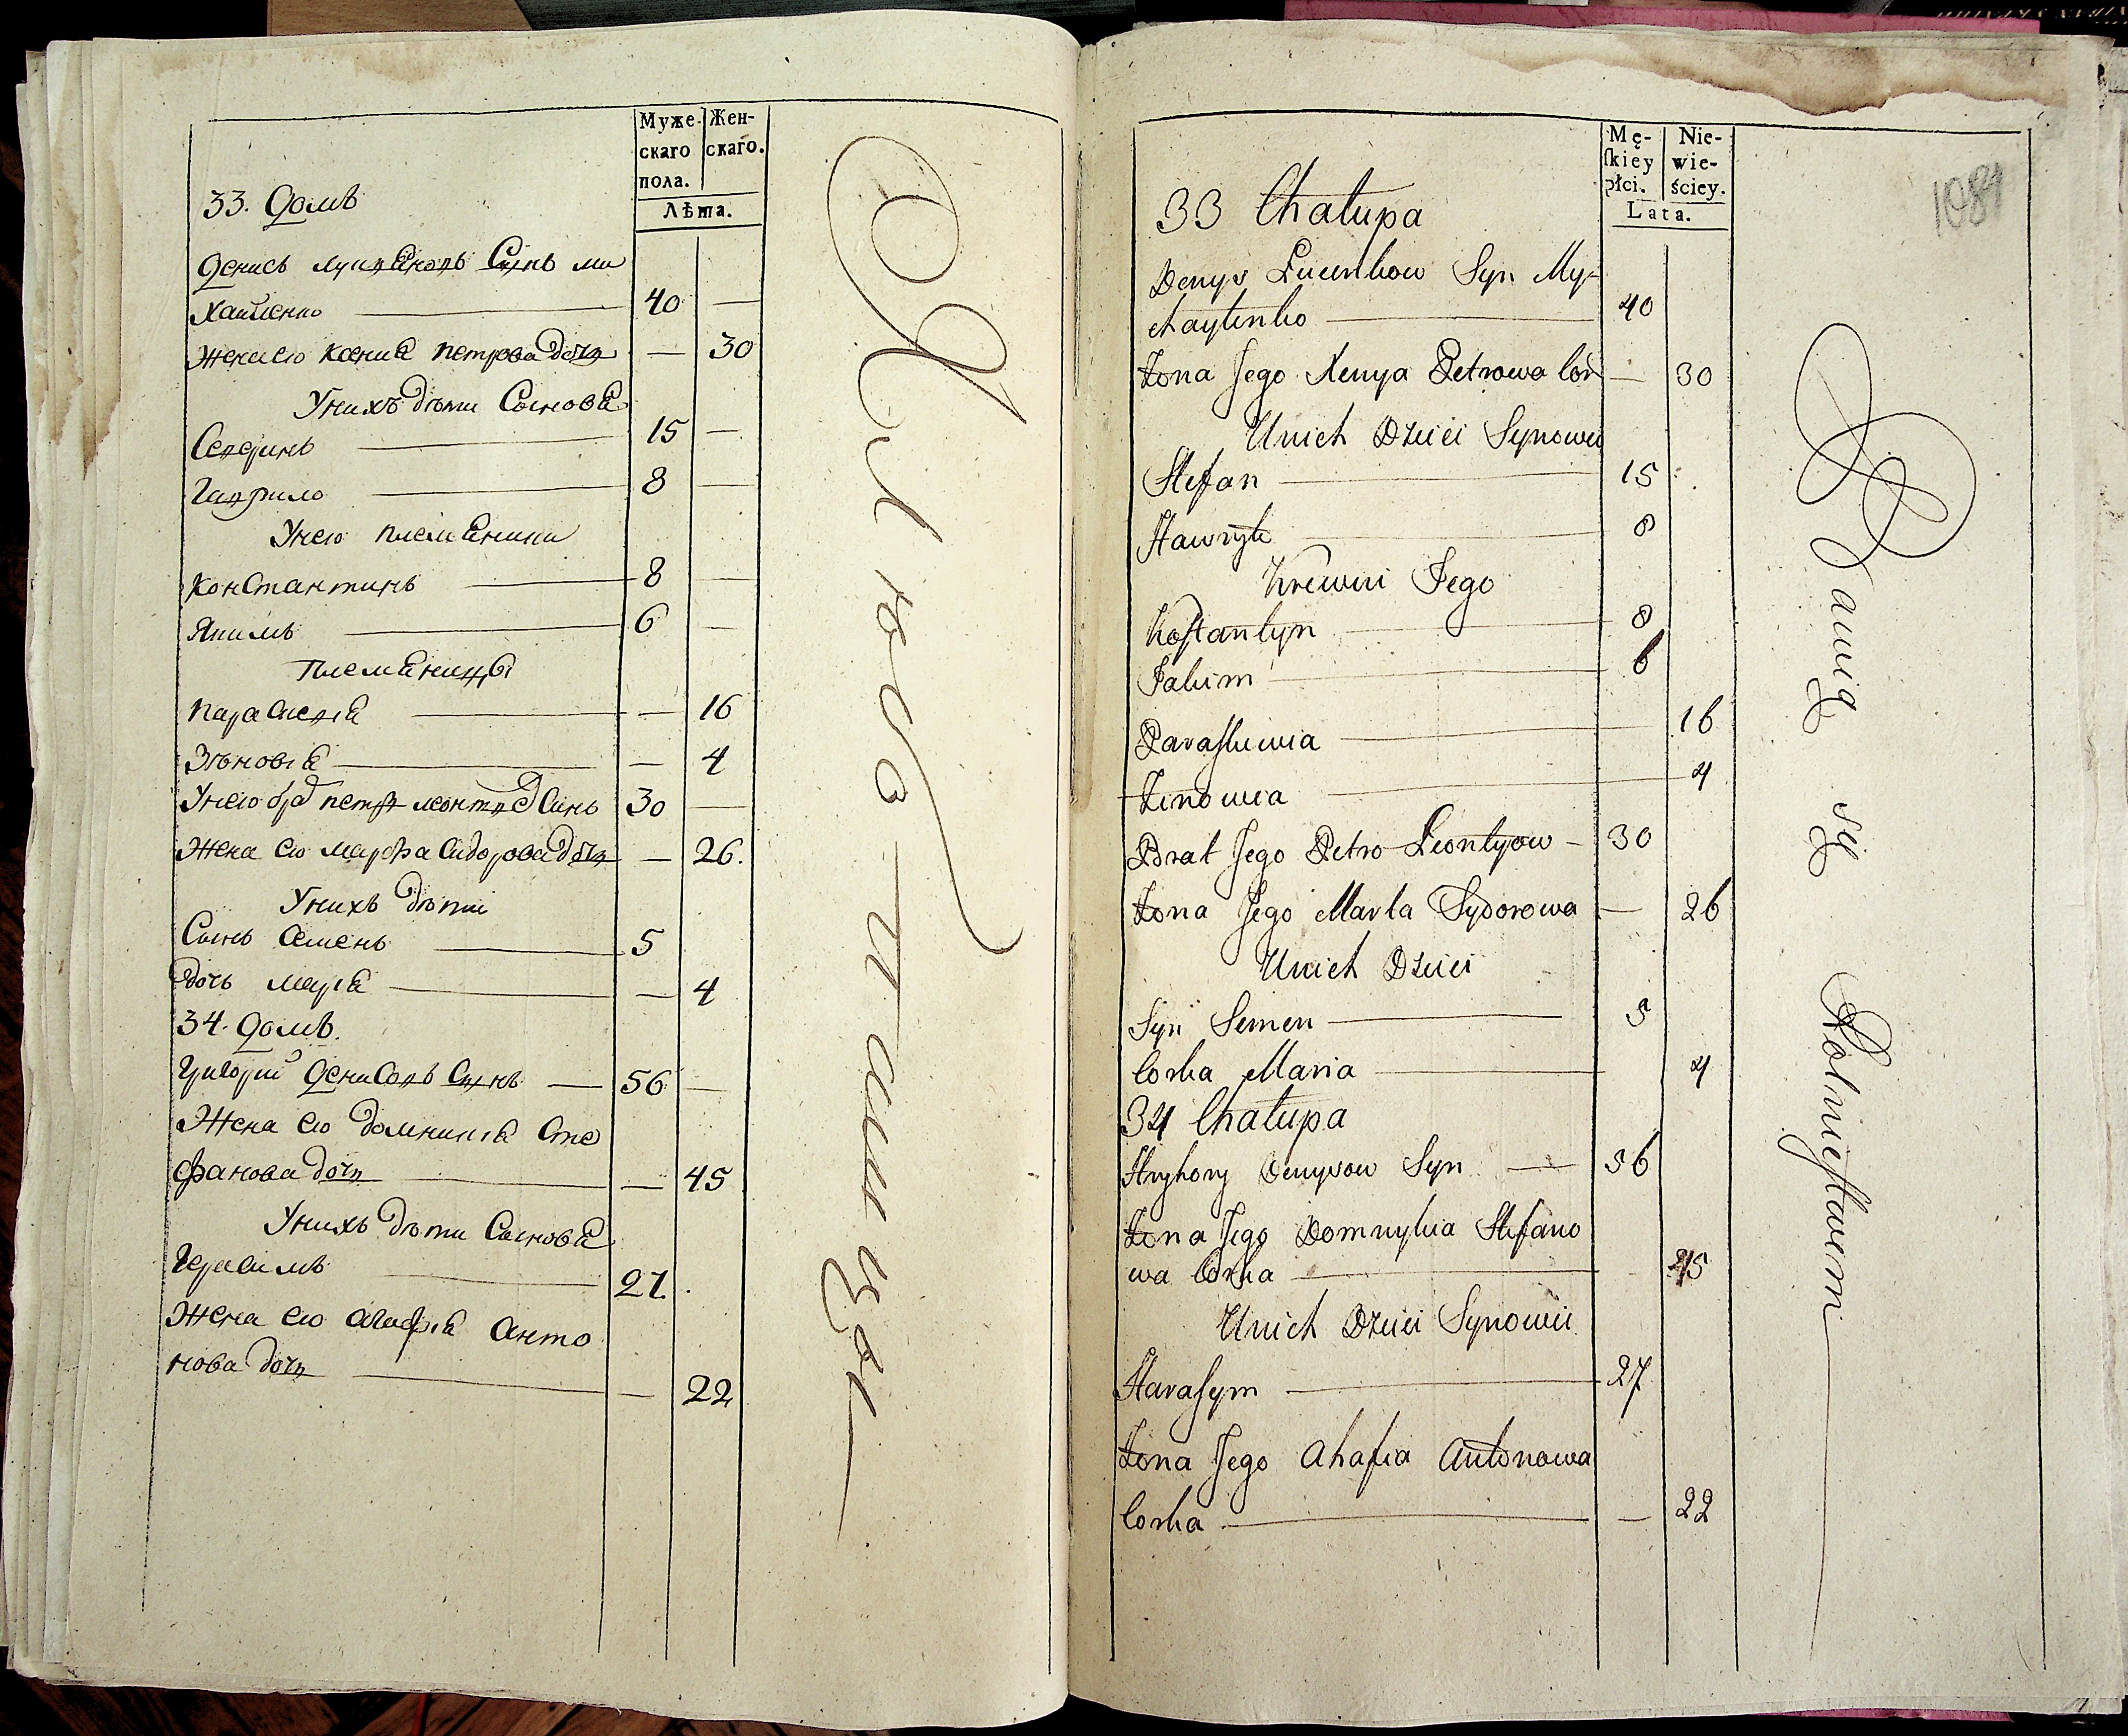 Муже-
скаго
пола.
Жен-
скаго.
Лѣта.
33. Домъ
Денисъ Сынъ ми
хайленко — 40 —
Жена его Ксения петрова дочь — 30
У нихъ дѣти Сыновя
15 —
Гаврило — 8 —
У него племяники
Константинъ — 8 —
Якимъ — 6 —
племяницы
параскевія — 16
Зѣновія — 4
У него бра петръ Синъ 30 —
Жена его марфа Сидорова дочь — 26.
У нихъ дѣти
Сынъ Семенъ — 5
дочь марія — 4
34. Домъ.
Григорий Денисовъ Сынъ — 56 —
Жена его домникія Сте
фанова дочь — 45
У нихъ дѣти Сыновя
Герасимъ — 27.
Жена его агафія Анто
нова дочь — 22
Mę-
skiey
płci.
Nie-
wie-
ściey.
Lata.
1081
33 Chałupa
Denys Syn My-
chayłenko — 40
Żona Jego Xenya Petrowa Cór — 30
U nich Dzieci Synowie
Stefan — 15
Hawryło — 8
Krewni Jego
Kostantyn — 8
Jakim — 6
Paraskiewia — 16
Zinowia — 4
Brat Jego Petro Leontyow — 30
Żona Jego Marta Sydorowa — 26
U nich Dzieci
Syn Semen — 5
Corka Maria — 4
34 Chałupa
Hryhory Denysow Syn — 56
Żona Jego Domnykia Stefano
wa Corka — 45
U nich Dzieci Synowie
Harasym — 27
Żona Jego Ahafia Antonowa
Corka — 22